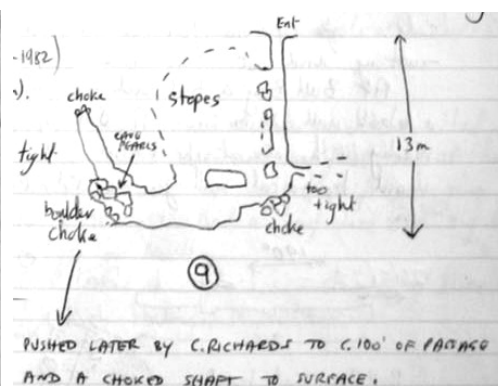 Ent
-1982)
).
choke
stopes
CAVE
PEARLS
tight
13m
too
tight
boulder
choke
choke
9
PUSHED LATER BY C.RICHARDS TO C.100' OF PASSAGE
AND A CHOKED SHAFT TO SURFACE.